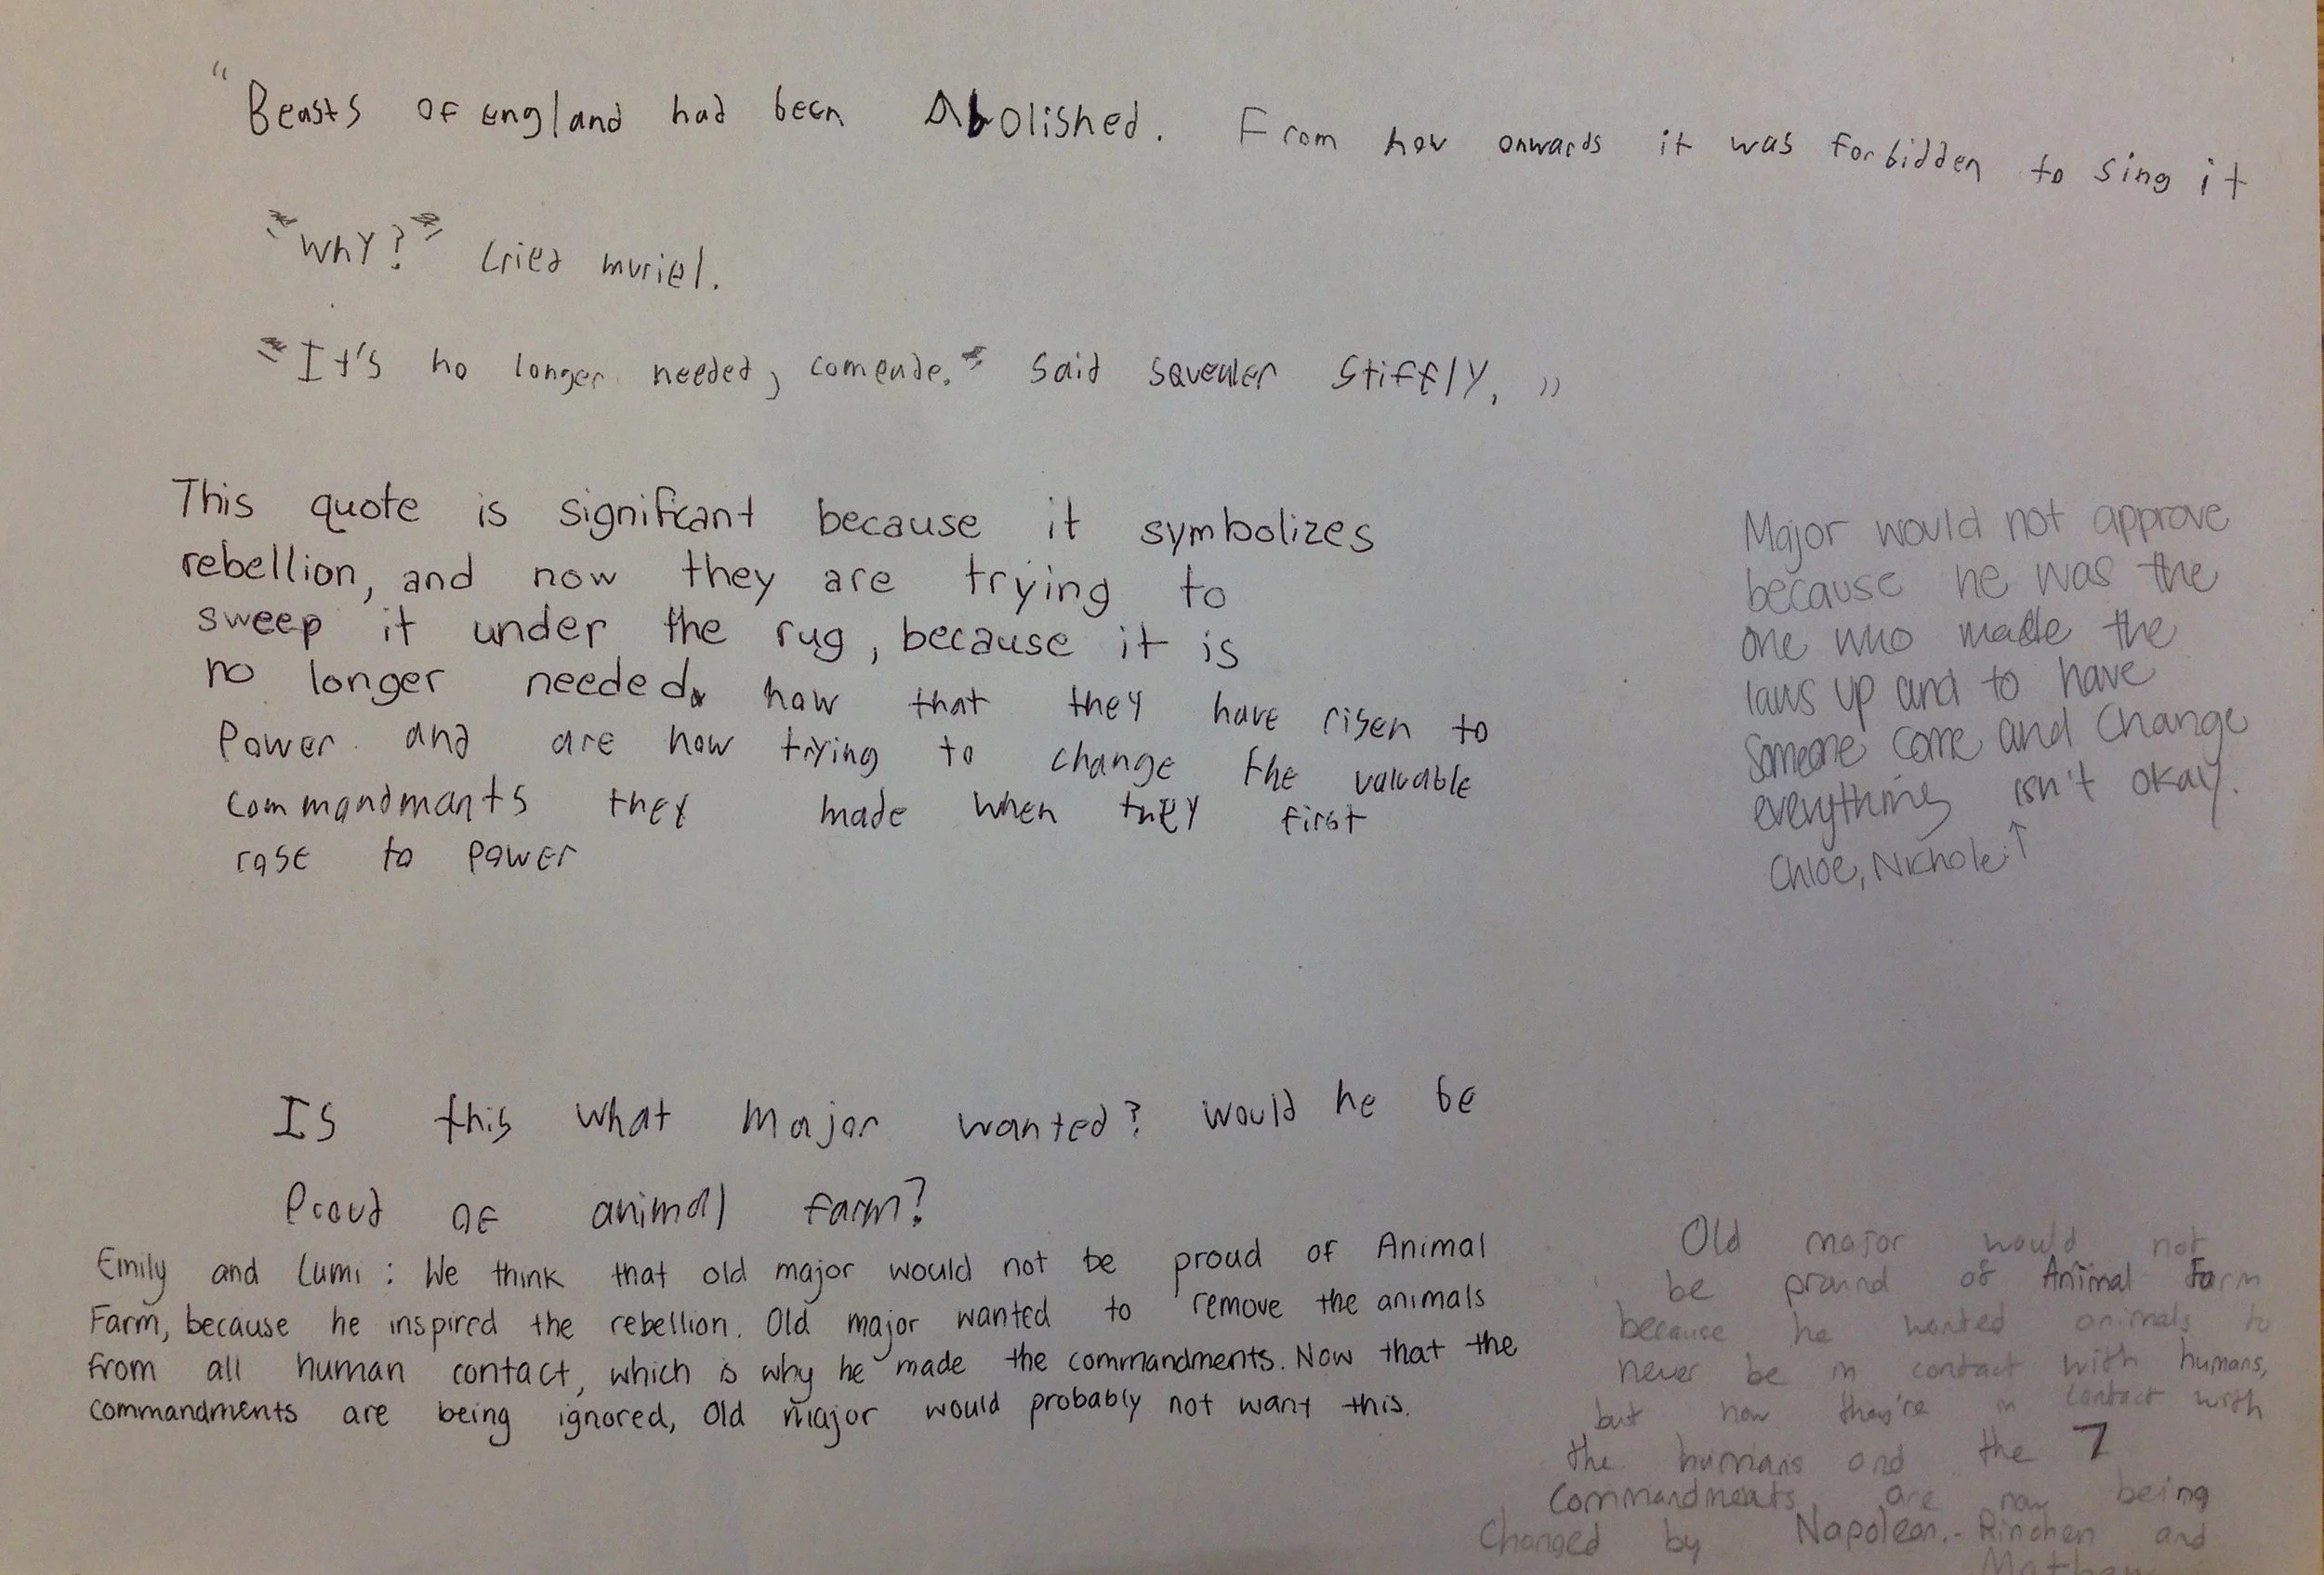 "Beasts of England had been Abolished. From now onwards it was forbidden to sing it
"Why?" cried muriel.
"It's no longer needed, comerade." said squealer stiffly. "
This quote is significant because it symbolizes
rebellion, and now they are trying to
sweep it under the rug, because it is
no longer needed. now that they have risen to
Power and are now trying to change the valuable
commandmants they made when they first
rose to power
Major would not approve
because he was the
one who made the
laws up and to have
someone come and change
everything isn't okay.
Chloe, Nichole ↑
Is this what Major wanted? would he be
Proud of animal farm?
Emily and Lumi: We think that old major would not be proud of Animal
Farm, because he inspired the rebellion. Old major wanted to remove the animals
from all human contact, which is why he made the commandments. Now that the
commandments are being ignored, Old major would probably not want this.
Old major would not
be proud of Animal Farm
because he wanted animals to
never be in contact with humans,
but now they're in contact with
the humans and the 7
Commandments are now being
Changed by Napolean.- Rinchen and